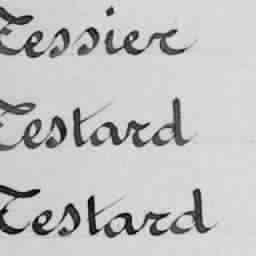 Tessier
Testard
Testard